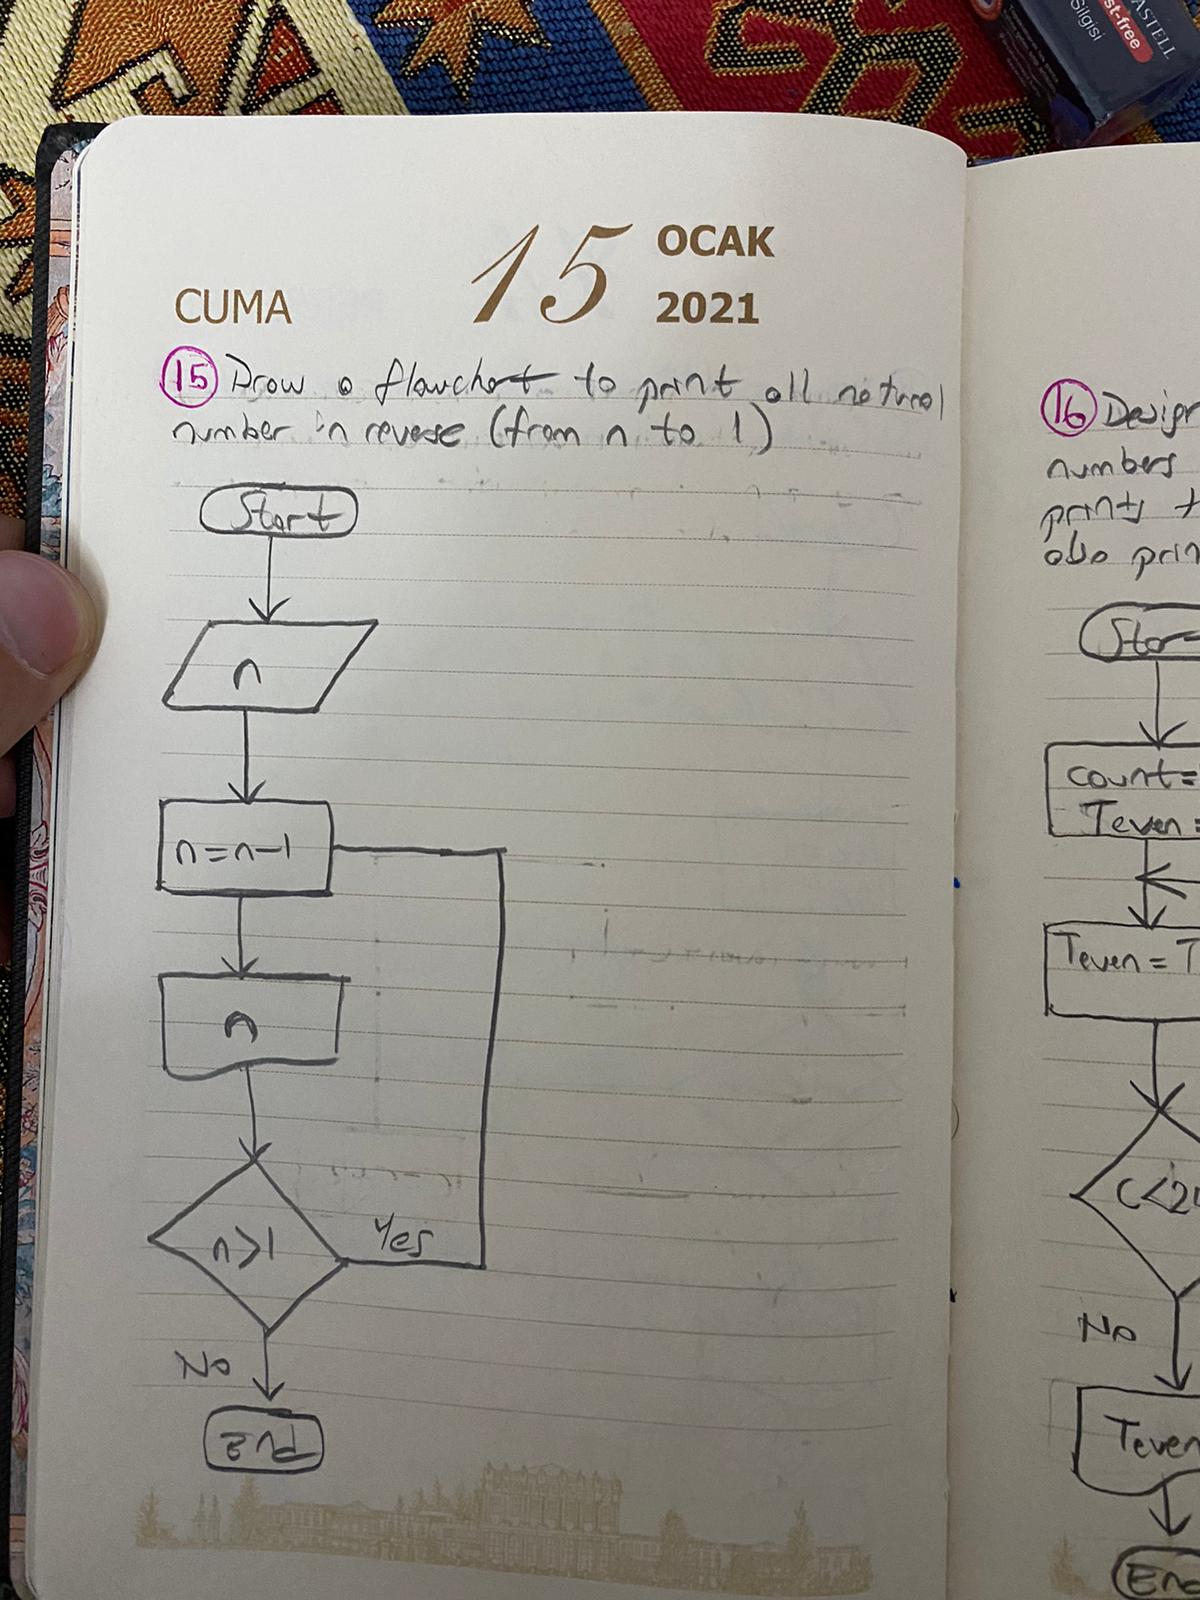 ASTELL
st-free
Silgisi
CUMA
15
OCAK
2021
15 Draw a flowchart to print all natural
number in reverse (from n to 1)
Start
n
n=n-1
n
n>1
Yes
No
End
16 Design
numbers
prints t
also prin
Star
count=
Teven=
Teven = T
C<20
No
Teven
End